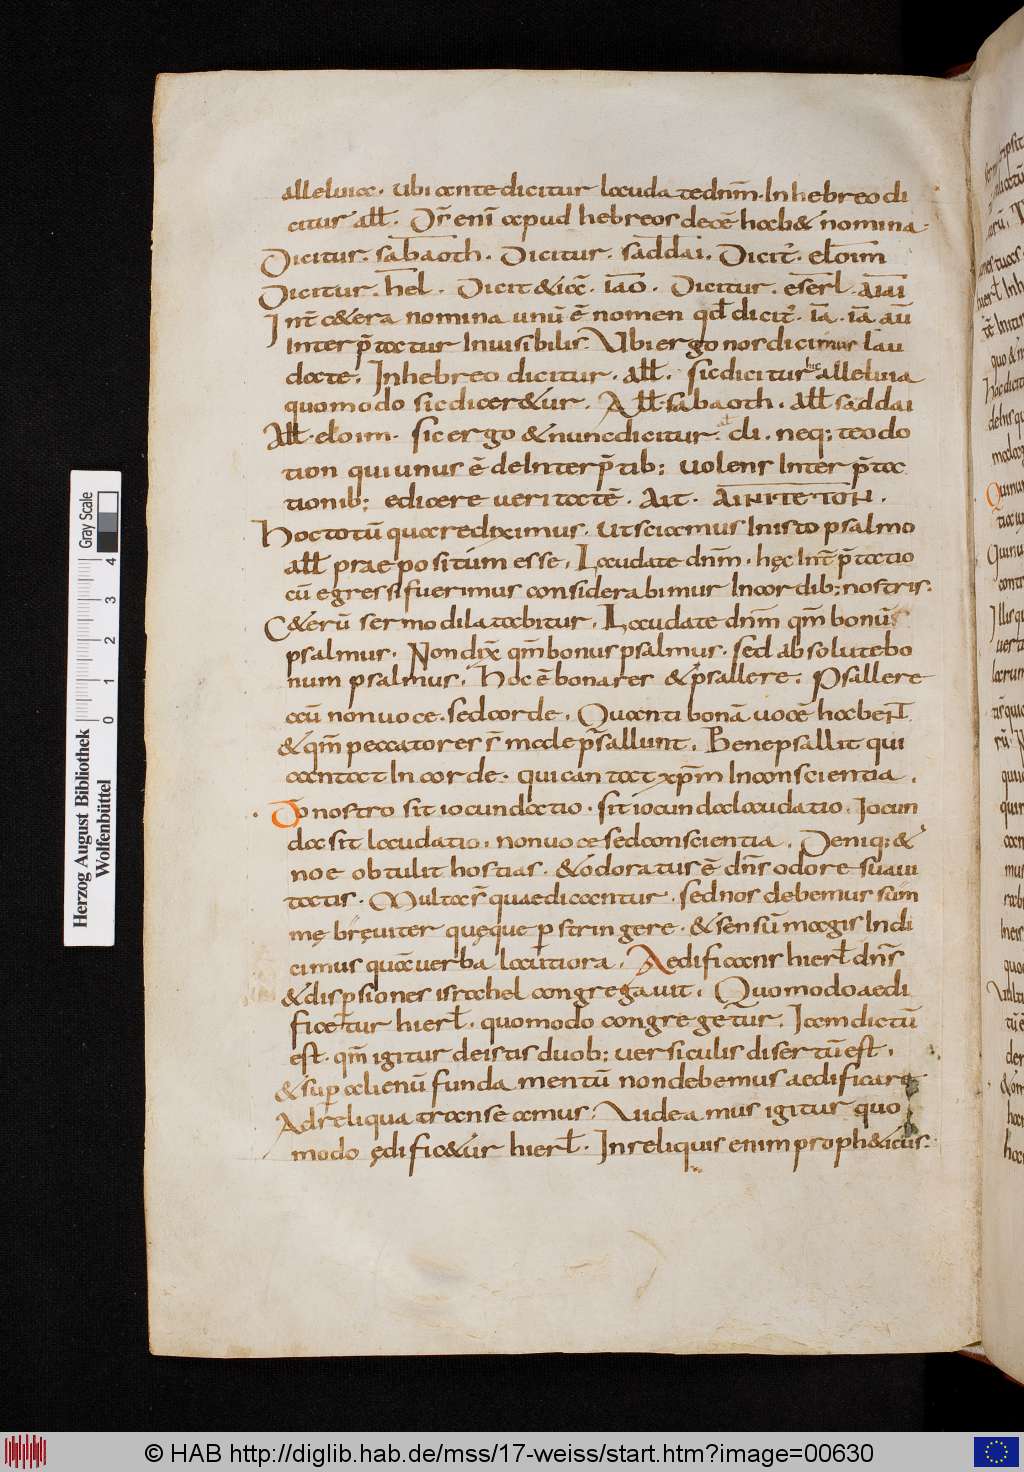 alleluia. ubi ante dicitur laudate dnm̄. In hebreo di
citur all̄. Dr̄ enī apud hebreos decē haboȩ nomina.
Dicitur. sabaoth. Dicitur. saddai. Dicit̄. eloim
Dicitur. hel. Dicit& iā. iao. Dicitur. eserl. aiai
Int̄ c&era nomina unū ē nomen qd̄ dicit̄. ia. ia. au
Inter p̄tatur Inuisibilis Ubi ergo nos dicimus lau
date. Inhebreo dicitur. all̄. sic dicitur hic alleluia
quomodo sic dicer&ur. All̄. sabaoth. all̄ saddai
All̄. eloim. sic ergo & nunc dicitur. di. neq; teodo
tion qui unus ē de Inter p̄tib; uolens Inter p̄ta
tionib; edicere ueritatē. Ait.
Hoc totū quare diximus. ut sciamus In isto psalmo
all̄ praepositum esse. Laudate dnm̄. hęc Int̄p̄tatio
cū egressi fuerimus considerabimus In cordib; nostris.
C&erū sermo dilatabitur. Laudate dnm̄ qm̄ bonus
psalmus. Non dix̄ qm̄ bonus psalmus. sed absolute bo
num psalmus. Hoc ē bona res & psallere. Psallere
aū non uoce. sed corde. Quanti bonā uocē habent
& qm̄ peccatores s̄ male psallunt. Bene psallit qui
cantat In corde. qui cantat xp̄m In conscientia.
Do nostro sit iocundatio. sit iocunda laudatio. Iocun
da sit laudatio. non uoce sed conscientia. Deniq; &
noe obtulit hostias. & odoratus ē dn̄s odore suaui
tatis. Multa s̄ quae dicantur. sed nos debemus sum
mę breuiter quęque perstringere. & sensū magis In di
cimus quā uerba latiora. Aedificans hierl̄ dn̄s
& dispersiones israhel congregauit. Quomodo aedi
ficetur hierl̄. quomodo congregetur. Iam dictū
est. qm̄ igitur de istis duob; uersiculis disertū est.
& sup alienū fundamentū non debemus aedificare
Ad reliqua transeamus. Uideamus igitur quo
modo ędific&ur hierl̄. In reliquis enim proph&icus.
Herzog August Bibliothek
Wolfenbüttel
Gray Scale
0 1 2 3 4
© HAB http://diglib.hab.de/mss/17-weiss/start.htm?image=00630